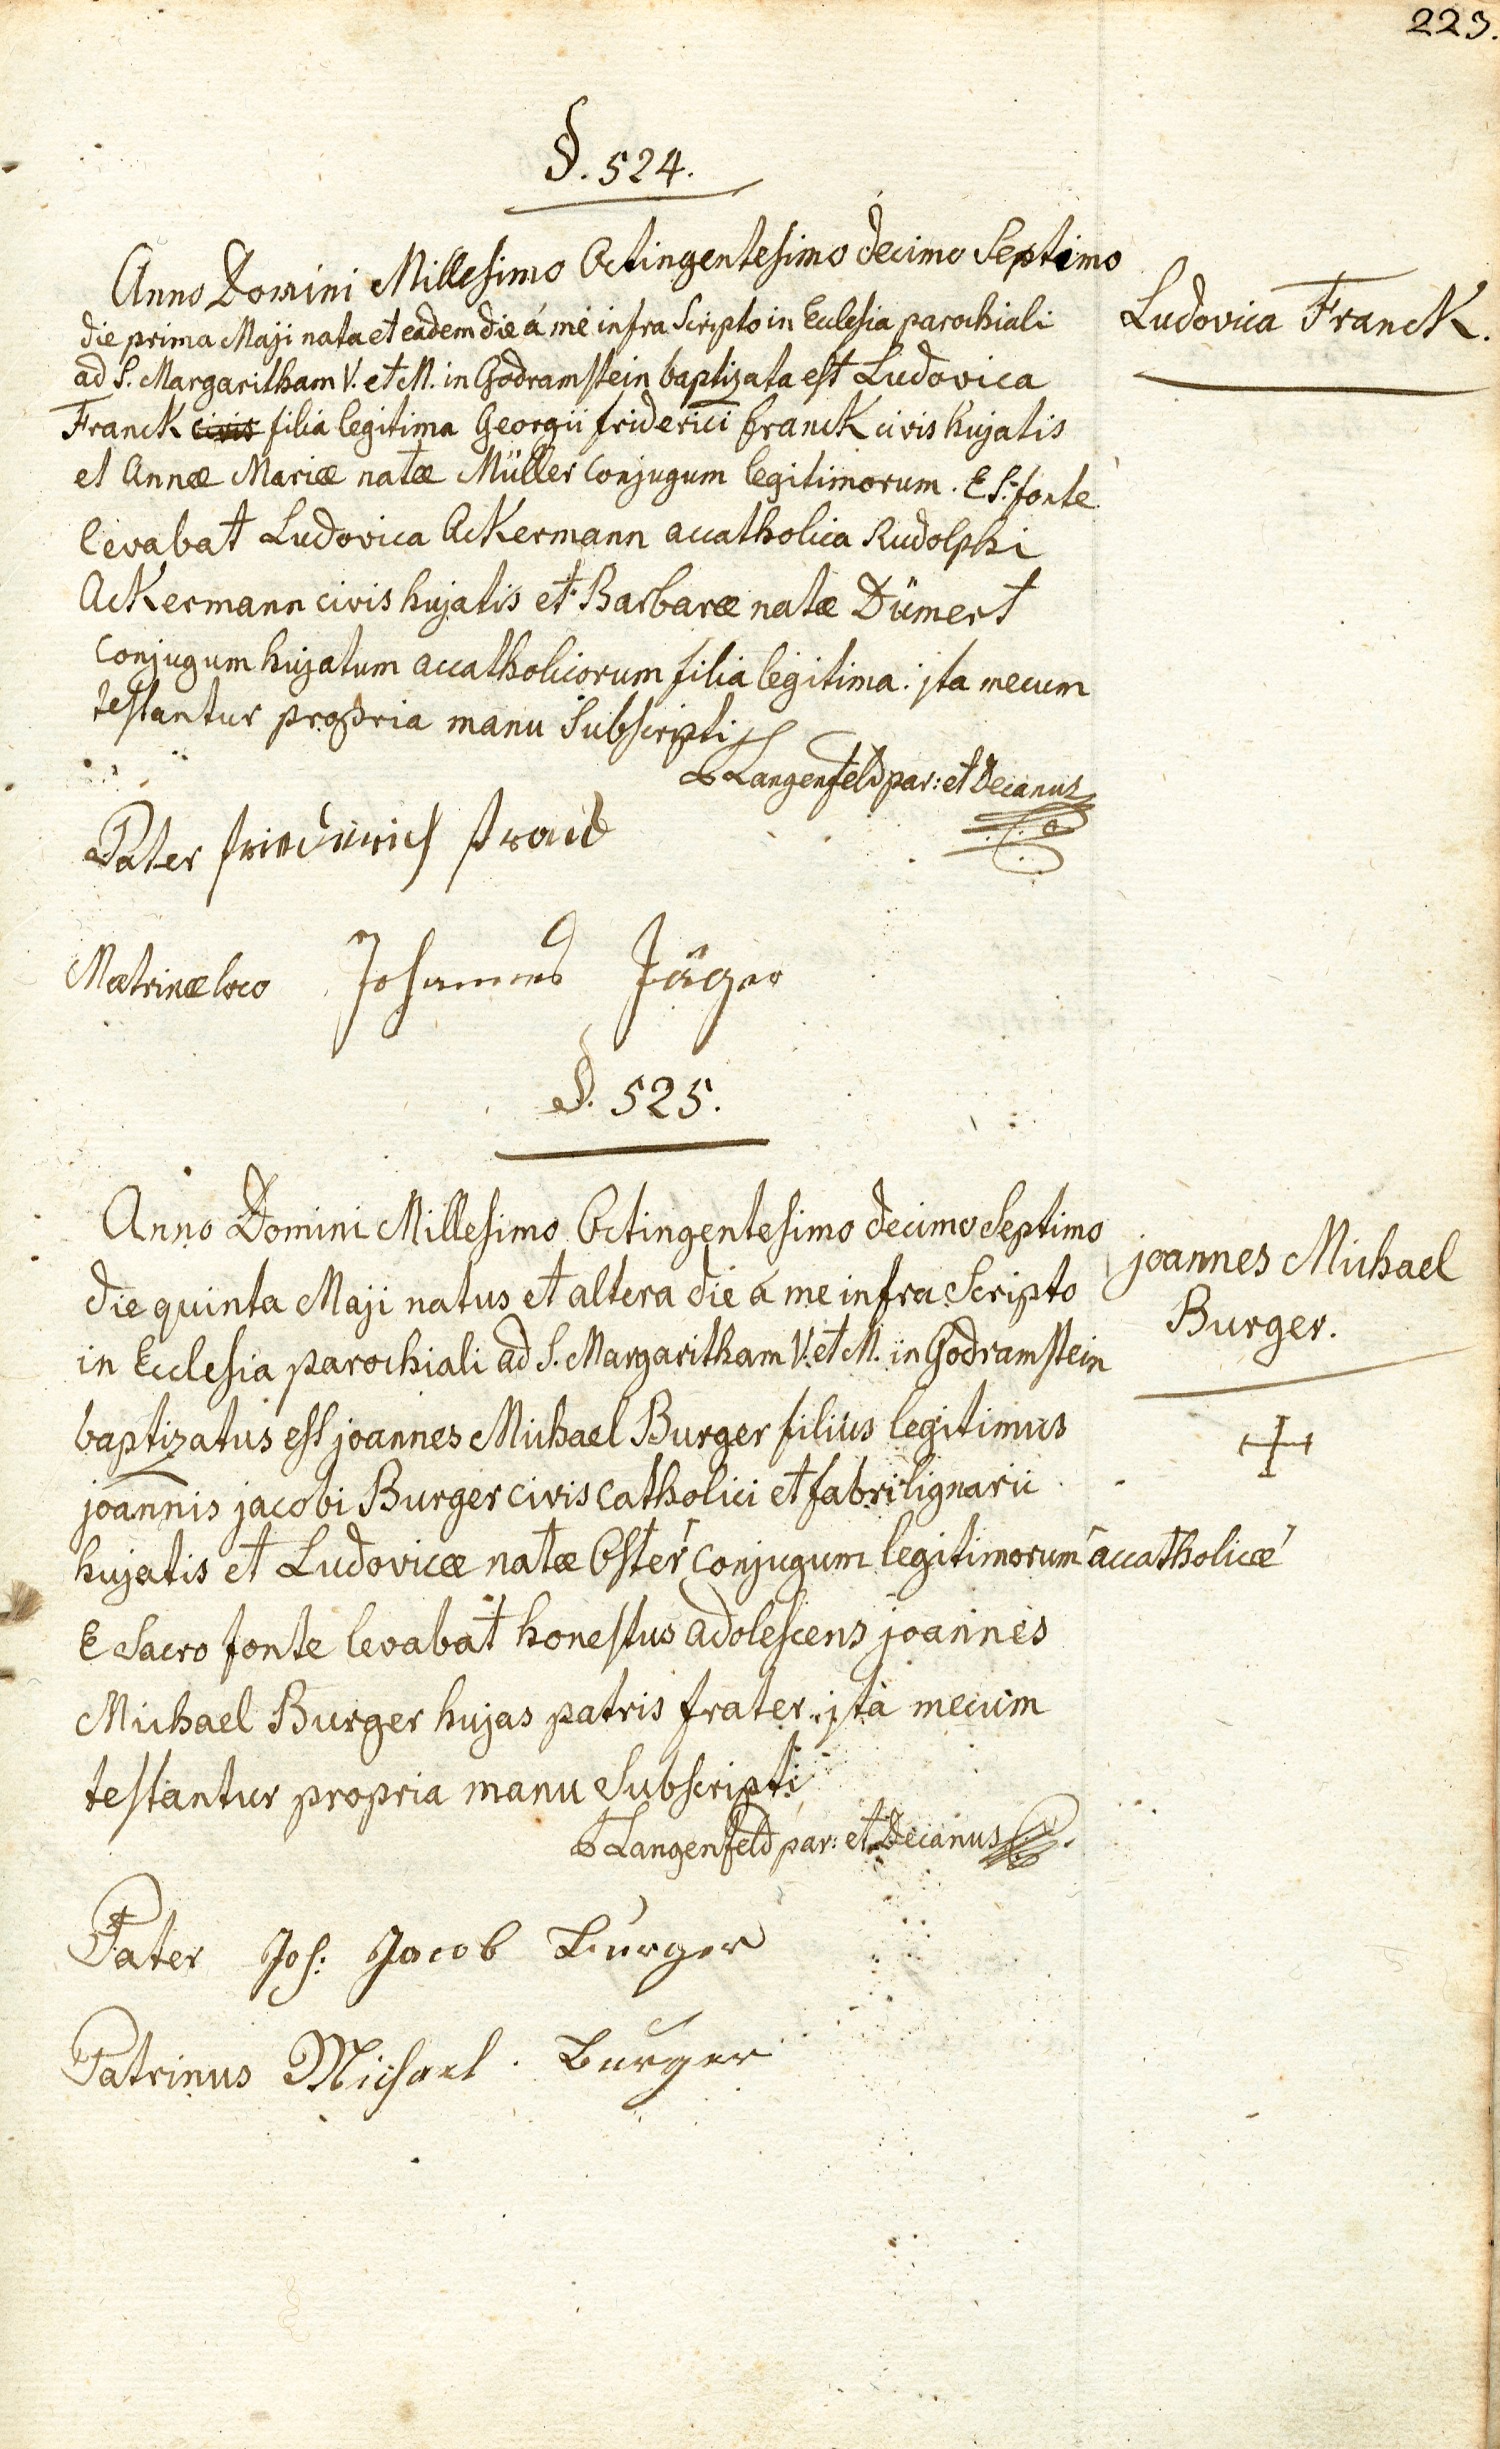 223.
§. 524.
Anno Domini Millesimo Octingentesimo decimo Septimo
die prima Maji nata et eadem die á me infra Scripto in Ecclesia parochiali
ad S. Margaritham V. et M. in Godramstein baptizata est Ludovica
Franck civis filia legitima Georgii friderici franck civis hujatis
et Annæ Mariæ natæ Müller conjugum legitimorum. E S: fonte
levabat Ludovica Ackermann accatholica Rudolphi
Ackermann civis hujatis et Barbaræ natæ Dümert
conjugum hujatum accatholicorum filia legitima. jta mecum
testantur propria manu Subscripti
Langenfeld par: et Decanus
Ludovica Franck.
Pater friederich
Matrinæ loco Johannes Jäger
§. 525.
Anno Domini Millesimo Octingentesimo decimo Septimo
die quinta Maji natus et altera die á me infra Scripto
in Ecclesia parochiali ad S. Margaritham V. et M. in Godramstein
baptizatus est joannes Michael Burger filius legitimus
joannis jacobi Burger civis catholici et fabri lignarii
hujatis et Ludovicæ natæ Oster ⌈ conjugum legitimorum ⌈ accatholicæ ⌉
E Sacro fonte levabat honestus adolescens joannes
Michael Burger hujas patris frater. jta mecum
testantur propria manu Subscripti
Langenfeld par: et Decanus
joannes Michael
Burger.
Pater Joh: Jacob Burger
Patrinus Michael Burger